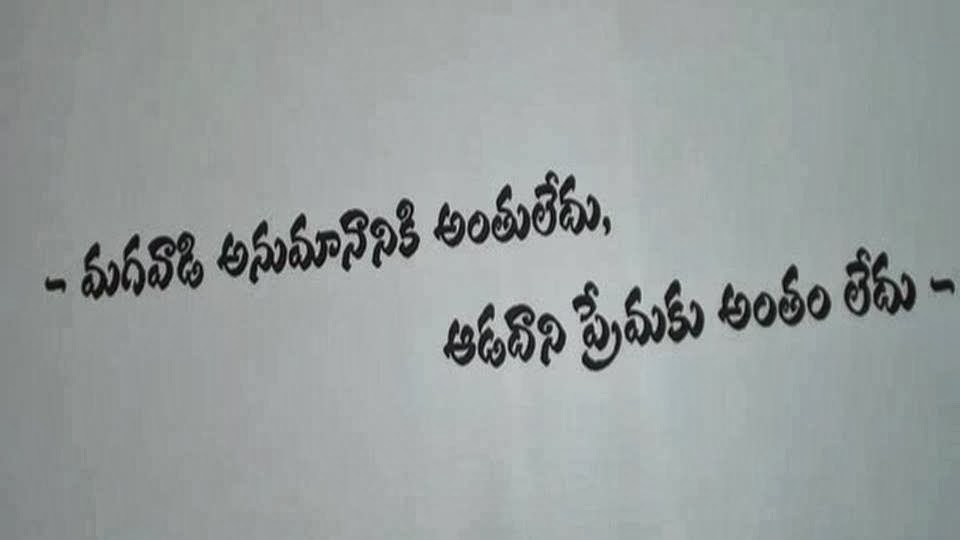 - మగవాడి అనుమానానికి అంతులేదు,
ఆడదాని ప్రేమకు అంతం లేదు -